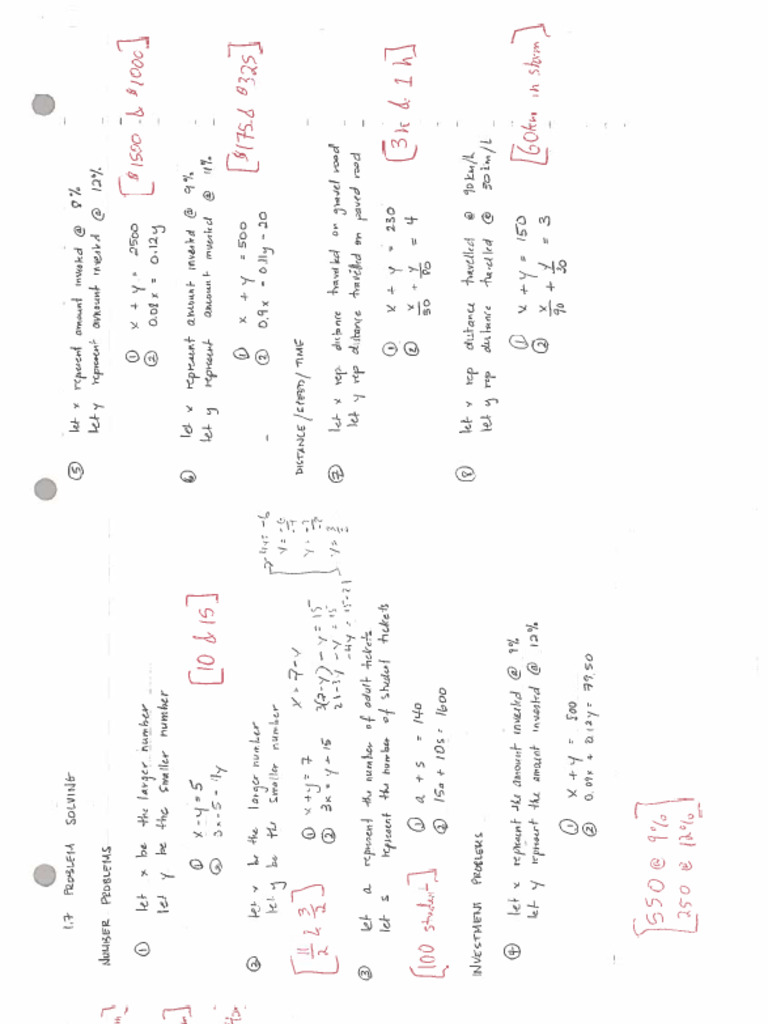 1.7 PROBLEM SOLVING
NUMBER PROBLEMS
① let x be the larger number
let y be the smaller number
① x - y = 5
② 3x - 5 = 4y
[10 & 15]
② let x be the larger number
let y be the smaller number
① x + y = 7
② 3x = y + 15
x = 7 - y
3(7-y) - y = 15
21 - 3y - y = 15
-4y = 15 - 21
-4y = -6
y = -6/-4
y = 3/2
[11/2 & 3/2]
③ let a represent the number of adult tickets
let s represent the number of student tickets
① a + s = 140
② 15a + 10s = 1600
[100 student]
INVESTMENT PROBLEMS
④ let x represent the amount invested @ 9%
let y represent the amount invested @ 12%
① x + y = 800
② 0.09x + 0.12y = 79.50
[550 @ 9%
250 @ 12%]
⑤ let x represent amount invested @ 8%
let y represent amount invested @ 12%
① x + y = 2500
② 0.08x = 0.12y
[$1500 & $1000]
⑥ let x represent amount invested @ 9%
let y represent amount invested @ 11%
① x + y = 500
② 0.9x = 0.11y - 20
[$175 & $325]
DISTANCE/SPEED/TIME
⑦ let x rep distance travelled on gravel road
let y rep distance travelled on paved road
① x + y = 230
② x/50 + y/80 = 4
[3h & 1h]
⑧ let x rep distance travelled @ 90km/h
let y rep distance travelled @ 30km/h
① x + y = 150
② x/90 + y/30 = 3
[60km in storm]